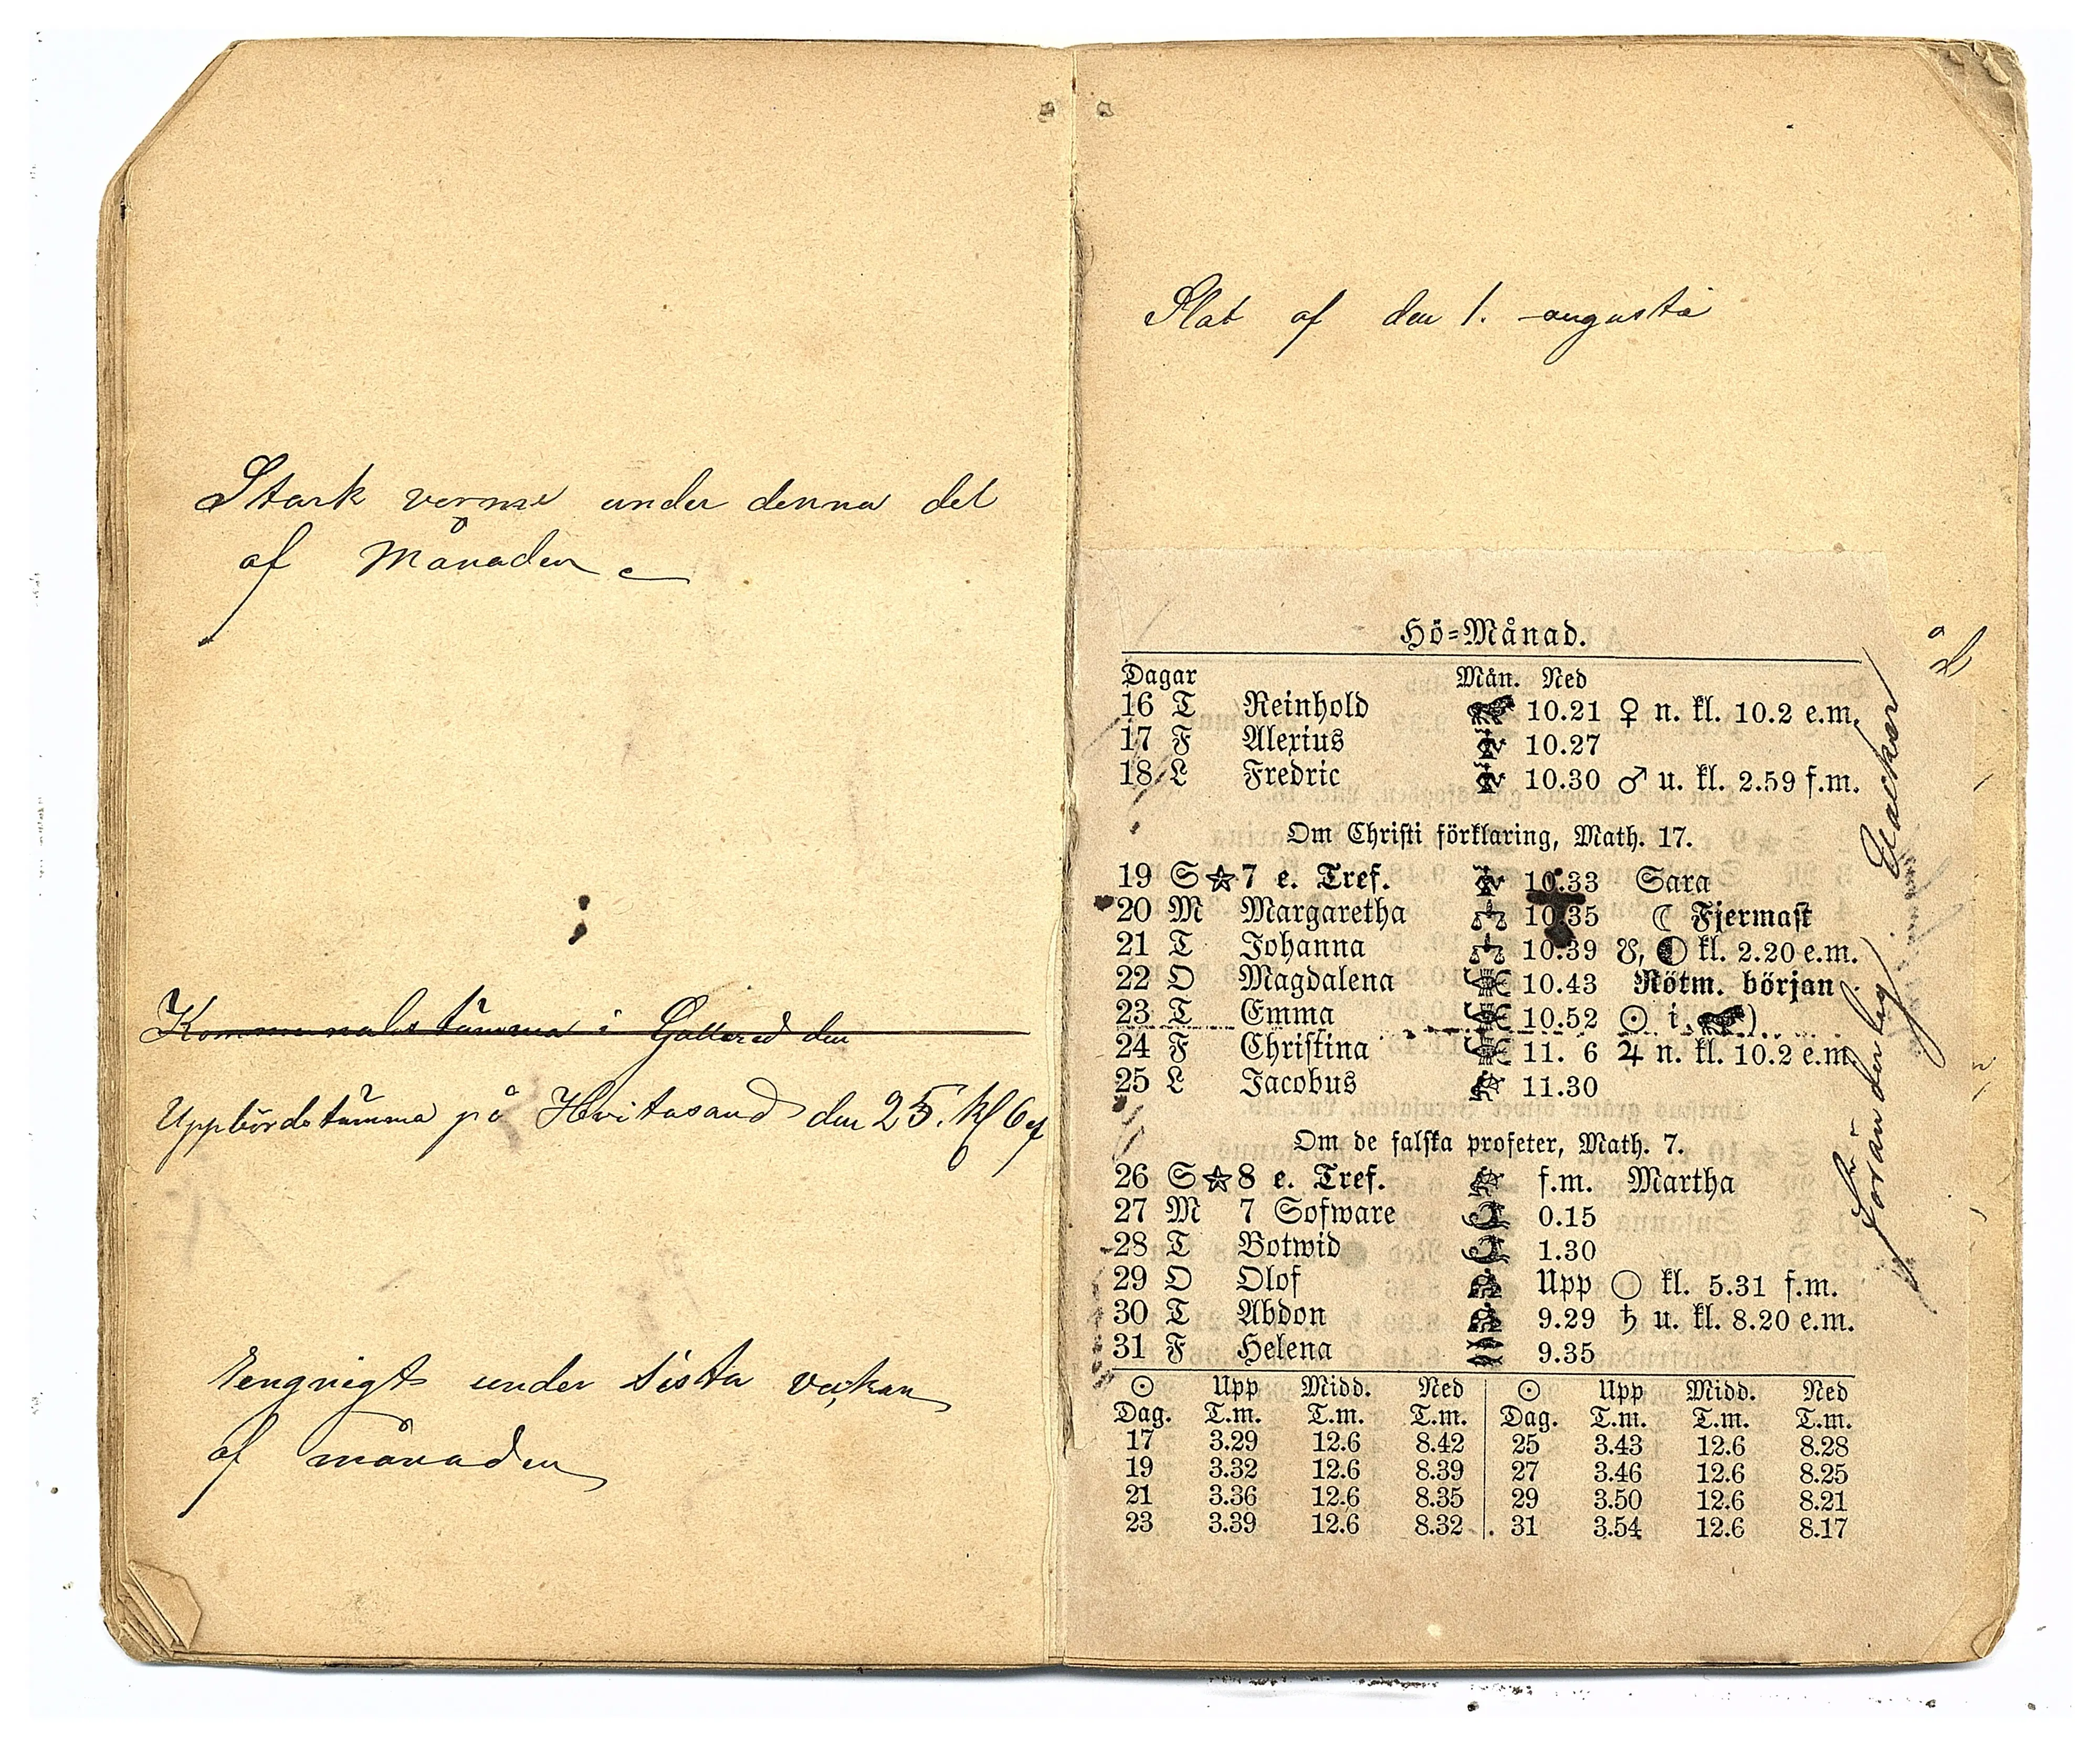 Stark verme under denna del
af Månaden
Kommunalstämma i Gällared den
Uppbördstämma på Hvitasand den 25. kl 6 ef
Regnigt under sista veckan
af månaden
Slut af den 1. augusti
Hö-Månad.
Dagar Mån. Ned
16 T Reinhold 10.21 ♀ n. kl. 10.2 e.m.
17 F Alexius 10.27
18 L Fredric 10.30 ♂ u. kl. 2.59 f.m.
Om Christi förklaring, Math. 17.
19 S ☆ 7 e. Tref. 10.33 Sara
20 M Margaretha 10.35 ☾ Fjermast
21 T Johanna 10.39 ☋, ◐ kl. 2.20 e.m.
22 O Magdalena 10.43 Rötm. början
23 T Emma 10.52 ☉ i ♌)
24 F Christina 11. 6 ♃ n. kl. 10.2 e.m.
25 L Jacobus 11.30
Om de falska profeter, Math. 7.
26 S ☆ 8 e. Tref. f.m. Martha
27 M 7 Sofware 0.15
28 T Botwid 1.30
29 O Olof Upp ○ kl. 5.31 f.m.
30 T Abdon 9.29 ♄ u. kl. 8.20 e.m.
31 F Helena 9.35
☉ Upp Midd. Ned ☉ Upp Midd. Ned
Dag. T.m. T.m. T.m. Dag. T.m. T.m. T.m.
17 3.29 12.6 8.42 25 3.43 12.6 8.28
19 3.32 12.6 8.39 27 3.46 12.6 8.25
21 3.36 12.6 8.35 29 3.50 12.6 8.21
23 3.39 12.6 8.32 31 3.54 12.6 8.17
Föränderlig Vacker